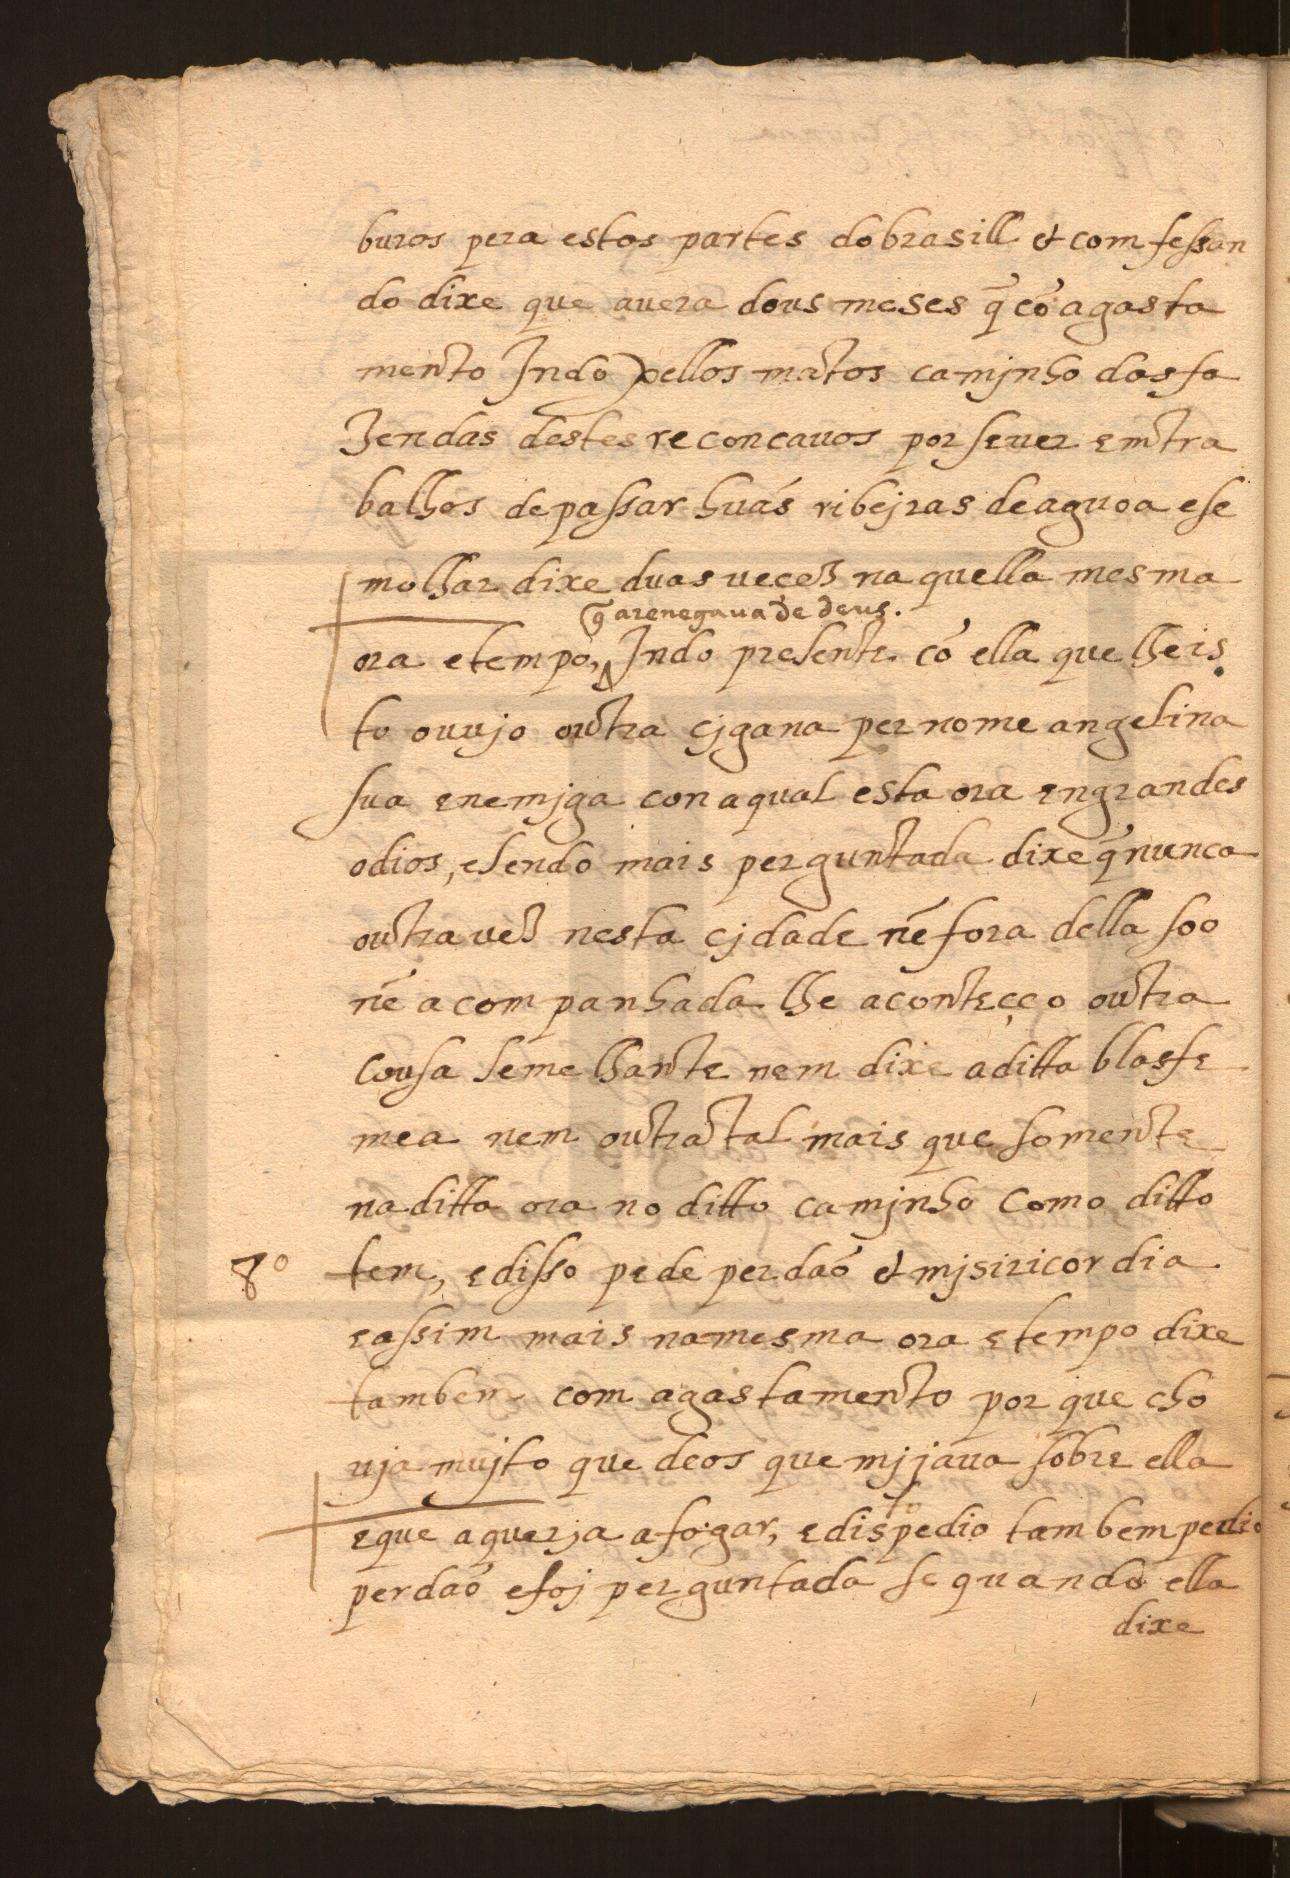 buros pera estos partes do brasill & comfessan
do dixe que auera dous meses q̃ cõ agasta
mento Indo pellos matos caminho das fa
zendas destes reconcauos por se uer em tra
balhos de passar huãs ribejras de aguoa e se
molhar dixe duas uecez naquella mesma
q̃ arenegaua de deus.
ora e tempo, Indo presente cõ ella que lhe is
to ouujo outra cjgana per nome angelina
sua enemjga con a qual esta ora en grandes
odios, e sendo mais perguntada dixe q̃ nunca
outra uez nesta cjdade nẽ fora della soo
nẽ acompanhada lhe aconteçeo outra
cousa semelhante nem dixe a ditta blasfe
mea nem outra tal mais que somente
na ditta ora no ditto camjnho como ditto
8º tem, e disso pede perdaõ & mjsiricordia
e assim mais na mesma ora e tempo dixe
tambem com agastamento por que cho
uja mujto que deos que mijaua sobre ella
e que a querja afogar, e disto pedio tambem pedio
perdaõ e foj perguntada se quando ella
dixe